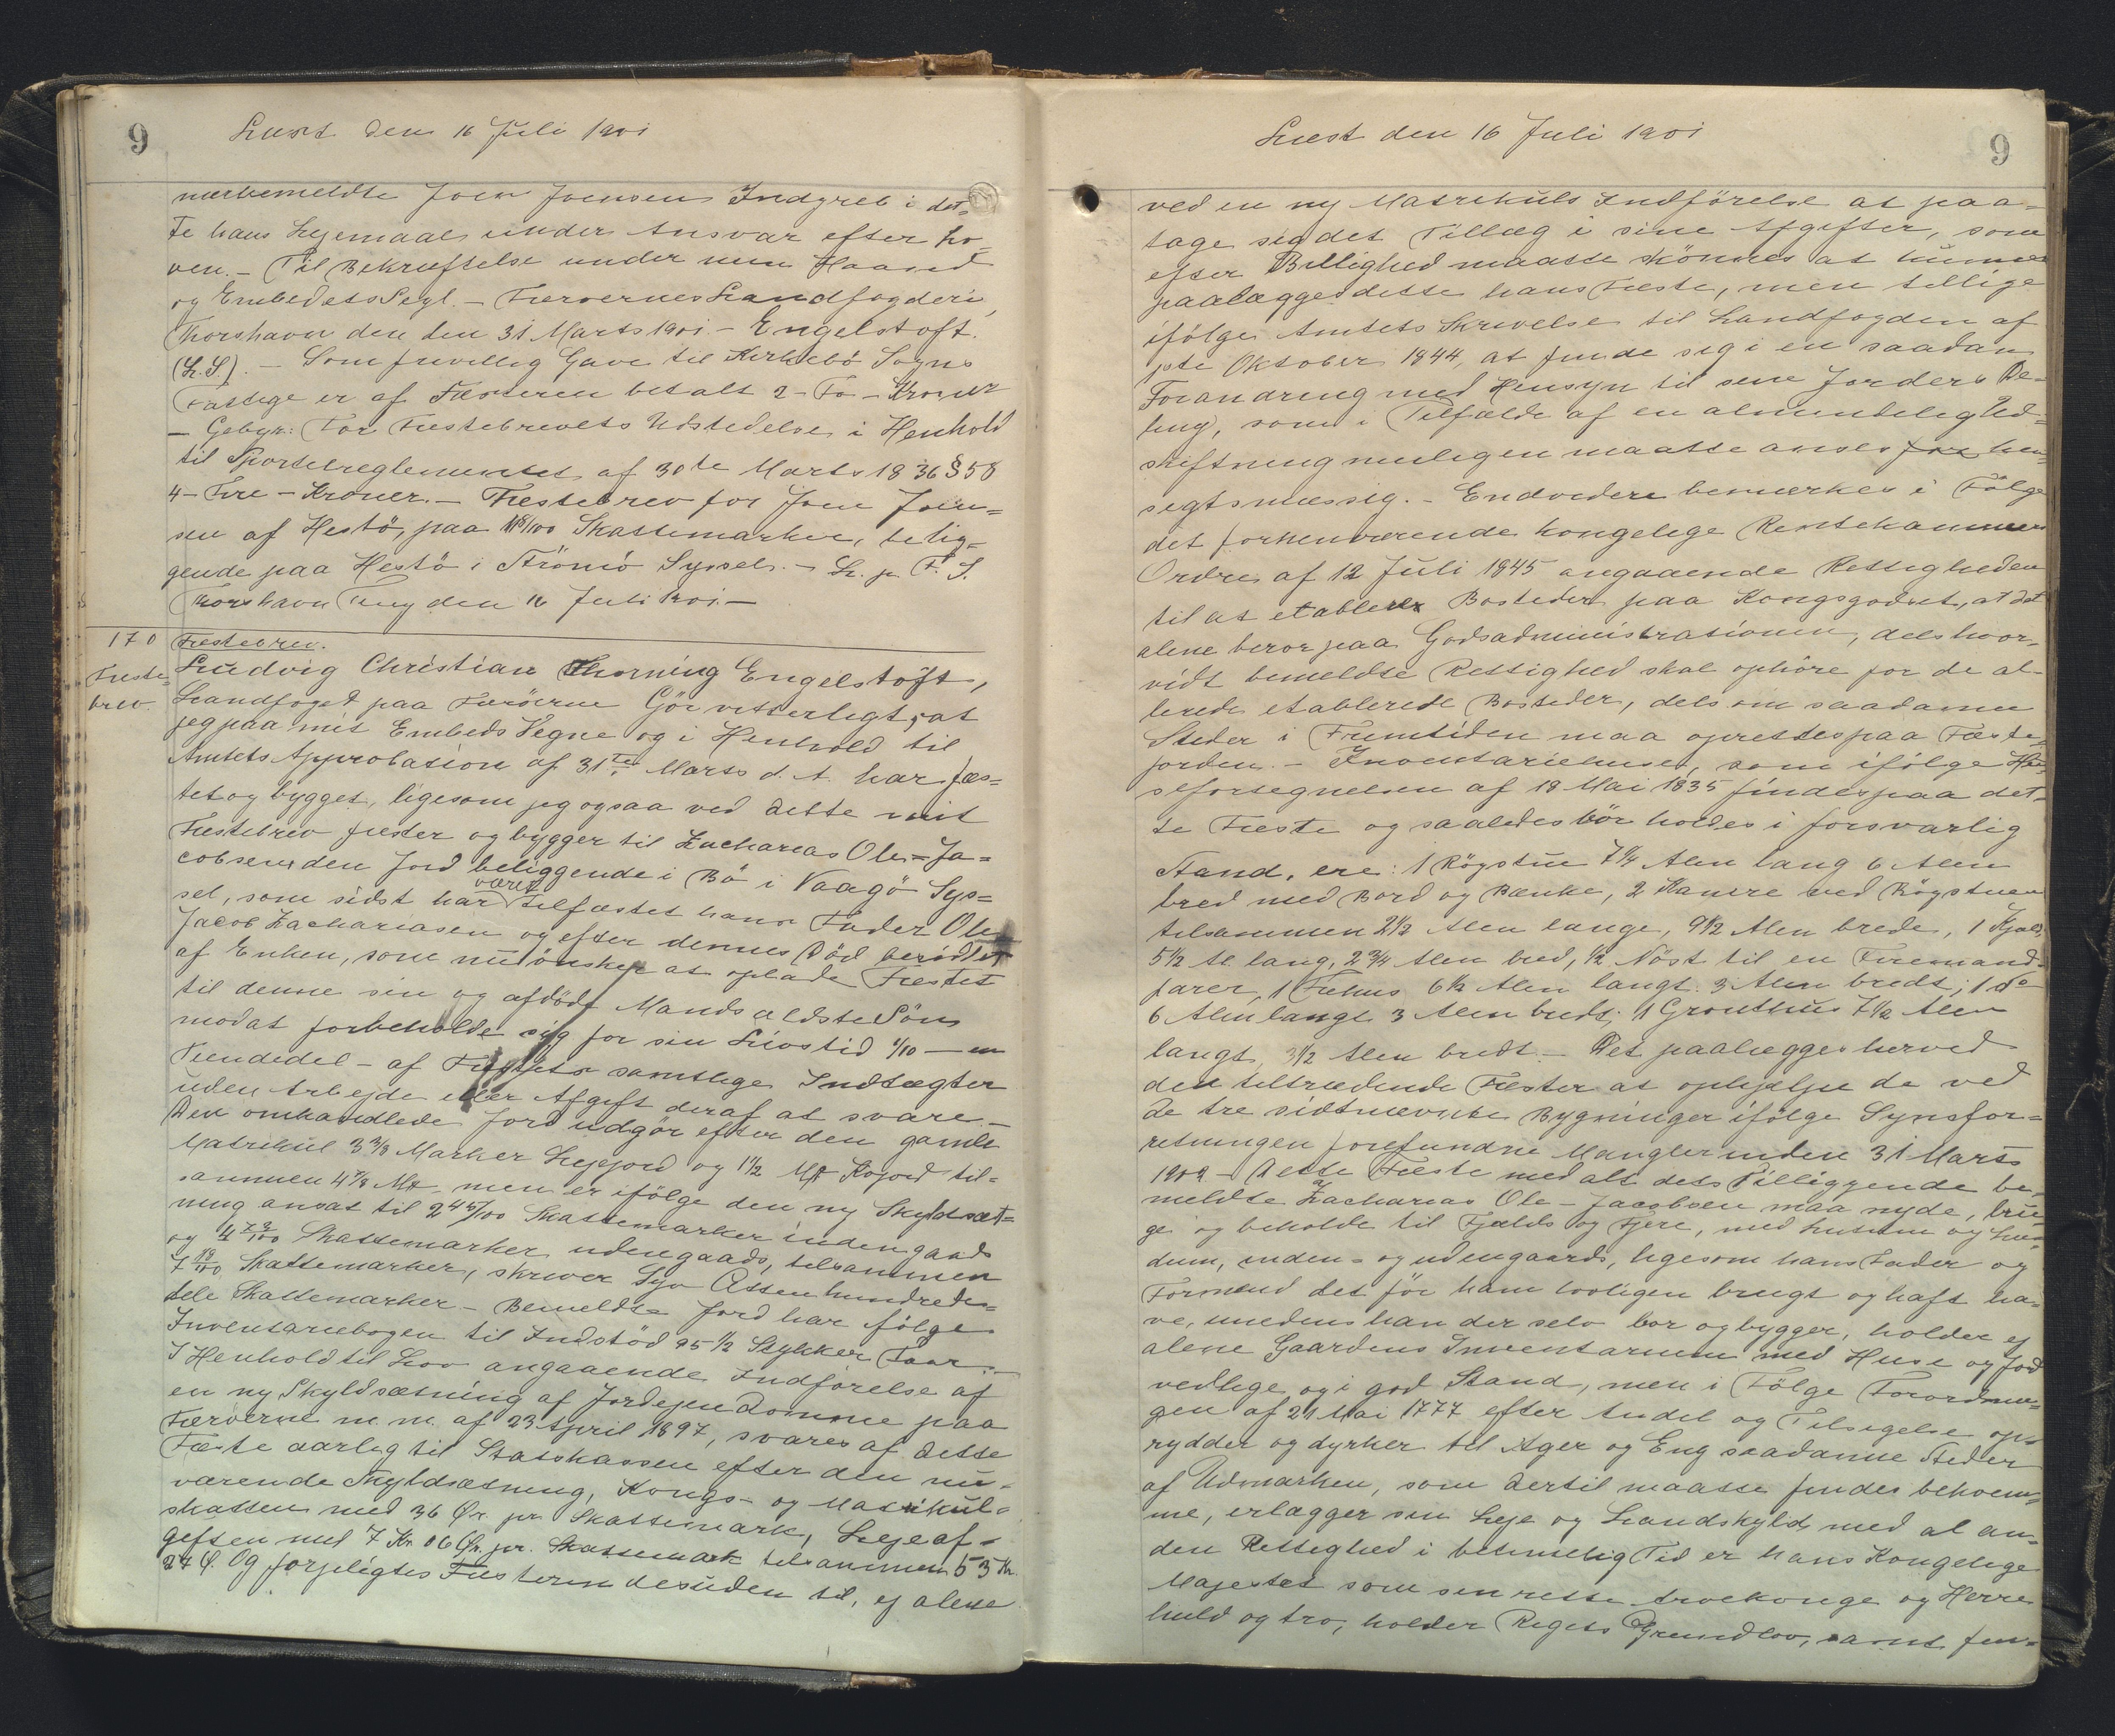 9
Læst den 16 Juli 1901
nærbemeldte Joen Joensen Indgreb i det-
te hans Lejemaal under Ansvar efter Lo-
ven. - Til Bekræftelse under min Haand
og Embedets Segl. - Færøernes Landfogderi,
Thorshavn den den 31 Marts 1901. - Engelstoft.
(L. S.). - Som frivillig Gave til Kirkebø Sogns
Fattige er af Fæsteren betalt 2 - To - Kroner
- Gebyr: For Fæstebrevets Udstedelse i Henhold
til Sportelreglementet af 30te Marts 1836 § 58
4 - Fire - Kroner. - Fæstebrev for Joen Joen-
sen af Hestö, paa Skattemarker, belig-
gende paa Hestö i Strömö Syssel. - L. p. F. S.
Thorshavn Ting den 16 Juli 1901. -
170
Fæste-
brev.
Fæstebrev.
Ludvig Christian Thorning Engelstoft,
Landfoged paa Færöerne Gör vitterligt, at
jeg paa mit Embeds Vegne og i Henhold til
Amtets Approbation af 31te Marts d. A. har fæs-
tet og bygget, ligesom jeg ogsaa ved dette mit
Fæstebrev fæster og bygger til Zacharias Ole-Ja-
cobsen den Jord beliggende i Bö i Vaagö Sys-
sel, som sidst har været tilfæstet hans Fader Ole
Jacob Zachariasen og efter dennes Död
af Enken, som nu önsker at oplade Fæstet
til denne sin og afdöde Mands ældste Sön
modat forbeholde sig for sin Livstid 1/10 - en
Tiendedel - af Fæstets samtlige Indtægter
uden Arbejde eller Afgift deraf at svare. -
Den omhandlede Jord udgör efter den gamle
Matrikul 3 3/8 Marker Lejejord og 1 1/2 Mk Kojord til-
sammen 4 7/8 Mk men er ifölge den ny Skyldsæt-
ning ansat til 2 46/100 Skattemarker indengaards
og 4 72/100 Skattemarker udengaards, tilsammen
7 18/100 Skattemarker, skriver Syv Atten hundrede-
dele Skattemarker - Bemeldte Jord har fölge
Inventariebogen til Indstöd 95 1/2 Stykker Faar. -
I Henhold til Lov angaaende Indförelse af
en ny Skyldsætning af Jordejendomme paa
Færöerne m. m. af 23 April 1897, svares af dette
Fæste aarlig til Statskassen efter den nu-
værende Skyldsætning, Kongs- og Matrikul-
skatten med 36 Ør. pr. Skattemark, Lejeaf-
giften med 7 Kr. 06 Ør. pr. Skattemark tilsammen 53 Kr.
27 Ø. Og forpligtes Fæsteren desuden til, ej alene
Læst den 16 Juli 1901
9
ved en ny Matrikuls Indförelse at paa-
tage sig det Tillæg i sine Afgifter, som
efter Billighed maatte skönnes at kunne
paalægges dette hans Fæste, men tillige
ifölge Amtets Skrivelse til Landfogden af
Oktober 1844, at finde sig i en saadan
Forandring med Hensyn til sine Jorders De-
ling, som i Tilfælde af en almindelig Ud-
skiftning muligen maatte anses for hen-
sigtsmæssig. - Endvidere bemærkes i Fölge
det forhenværende kongelige Rentekammers
Ordre af 12 Juli 1845 angaaende Rettigheden
til at etablere Bosteder paa Kongsgodset, at det
alene beror paa Godsadministrationen, dels hvor-
vidt bemeldte Rettighed skal ophöre for de al-
lerede etablerede Bosteder, dels om saadanne
Steder i Fremtiden maa oprettes paa Fæste-
jorden. - Inventariehuse, som ifölge Hu-
sfortegnelsen af 18 Mai 1835 findes paa det-
te Fæste og saaledes bör holdes i forsvarlig
Stand, ere: 1 Rögstue 7 1/4 Alen lang 6 Alen
bred med Bord og Bænke, 2 Kamre ved Rögstuen
tilsammen 2 1/2 Alen lange, 9 1/2 Alen brede, 1 Hjald
5 1/2 Al. lang, 2 3/4 Alen bred, 1/2 Nöst til en Firemand-
farer, 1 Fæhus 6 1/2 Alen langt 3 Alen bredt, 1 do
6 Alen langt 3 Alen bredt, 1 Grouthus 7 1/2 Alen
langt, 3 1/2 Alen bredt. - Det paalægges herved
den tiltrædende Fæster at ophjælpe de ved
de tre sidtnævnte Bygninger ifölge Synsfor-
retningen forefundne Mangler inden 31 Marts
1902 - Dette Fæste med alt dets Tilliggende be-
meldte Zacharias Ole-Jacobsen maa nyde, bru-
ge og beholde til Fjælds og Fjere, med Lutum og Lun-
dum, inden- og udengaards, ligesom hans Fader og
Formænd det för ham lovligen brugt og haft ha-
ve, imedens han der selv bor og bygger, holder ej
alene Gaardens Inventarium med Huse og Jord
vedlige og i god Stand, men i Fölge Forordnin-
gen af 21 Mai 1777 efter Andel og Tilsigelse op-
rydder og dyrker til Ager og Eng saadanne Steder
af Udmarken, som dertil maatte findes bekvem-
me, erlægger sin Leje og Landskyld med al an-
den Rettighed i betimelig Tid er hans Kongelige
Majestet som sin rette Arvekonge og Herre
huld og tro, holder Rigets Grundlov, samt fin-